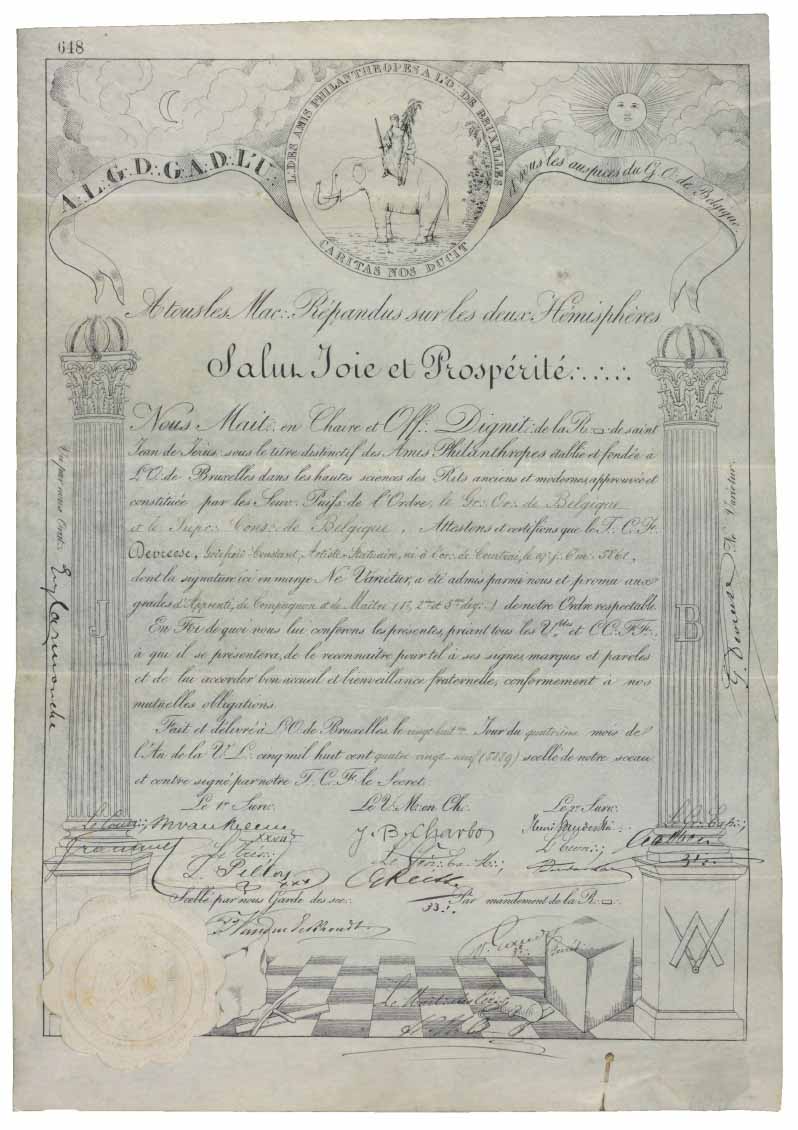 648
L∴ DES AMIS PHILANTHROPES A L'O∴ DE BRUXELLES
CARITAS NOS DUCIT
A∴L∴G∴D∴G∴A∴D∴L'U∴
sous les auspices du G∴O∴ de Belgique
A tous les Maç∴ Répandus sur les deux Hémisphères
Salut Joie et Prospérité∴∴∴
Nous Mait∴ en Chaire et Off∴ Dignit∴ de la R▭ de saint
Jean de Jérus∴ sous le titre distinctif des Amis Philanthropes établie et fondée à
L'O∴ de Bruxelles dans les hautes sciences des Rits anciens et modernes, approuvée et
constituée par les Souv∴ Puiss∴ de l'Ordre, le Gr∴ Or∴ de Belgique
et le Supr∴ Cons∴ de Belgique, Attestons et certifions que le T∴C∴F∴
Devreese, Constant, Artiste Statuaire, né à l'or∴ de Courtrai, le
dont la signature ici en marge Ne Varietur, a été admis parmi nous et promu aux
grades d'Apprenti, de Compagnon et de Maître (1er, 2me et 3me degr∴) de notre Ordre respectable.
En Foi de quoi nous lui conferons les présentes, priant tous les V∴ et CC∴FF∴
à qui il se présentera, de le reconnaître pour tel à ses signes, marques et paroles
et de lui accorder bon accueil et bienveillance fraternelle, conformement à nos
mutuelles obligations.
Fait et délivré à L'O∴ de Bruxelles, le vingt huit me Jour du quatrième mois de
l'An de la V∴L∴ cinq mil huit cent quatre vingt neuf (5889) scellé de notre sceau
et contre signé par notre T∴C∴F∴ le Secret∴
Le 1er Surv∴
Le V∴M∴ en Ch∴
Le 2e Surv∴
XXXII
J. B. Charbo
31∴
L. Pilloy
XXX
33∴
Scellé par nous Garde des sce∴
Par mandement de la R▭
Vu par nous Orat∴
Ne Varietur
G. Devreese
J
B